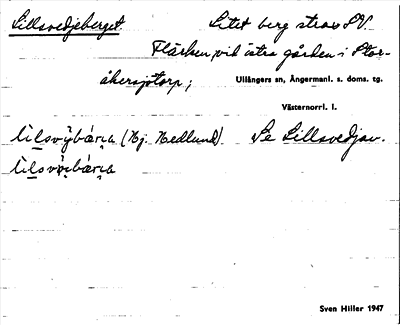 Lillsvedjeberget. Litet berg strax SV.
Flärken, vid östra gården i Stor-
åkersjötorp;
Ullångers sn, Ångermanl. s. doms. tg.
Västernorrl. l.
(Hj. Hedlund). Se Lillsvedjan.
Sven Hiller 1947